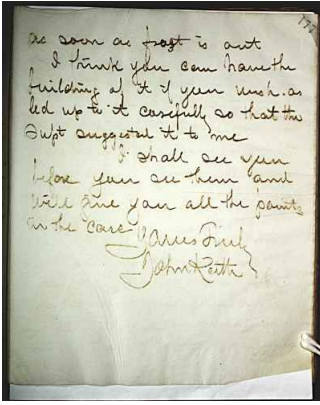 as soon as frost is out
I think you can have the
building of it if you wish. as
led up to it carefully so that the
Supt suggested it to me
I shall see you
before you see them and
will give you all the points
in the case
Yours Truly
John Keith